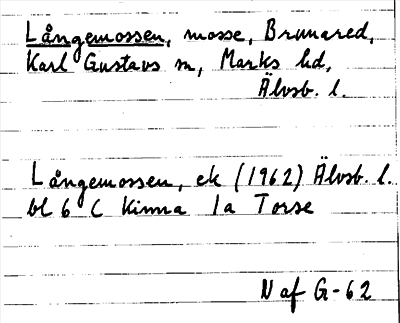 Långemossen, mosse, Brunared,
Karl Gustavs sn, Marks hd,
Älvsb. l.
Långemossen, ek (1962) Älvsb. l.
bl 6 C Kinna 1a Torse
N af G-62